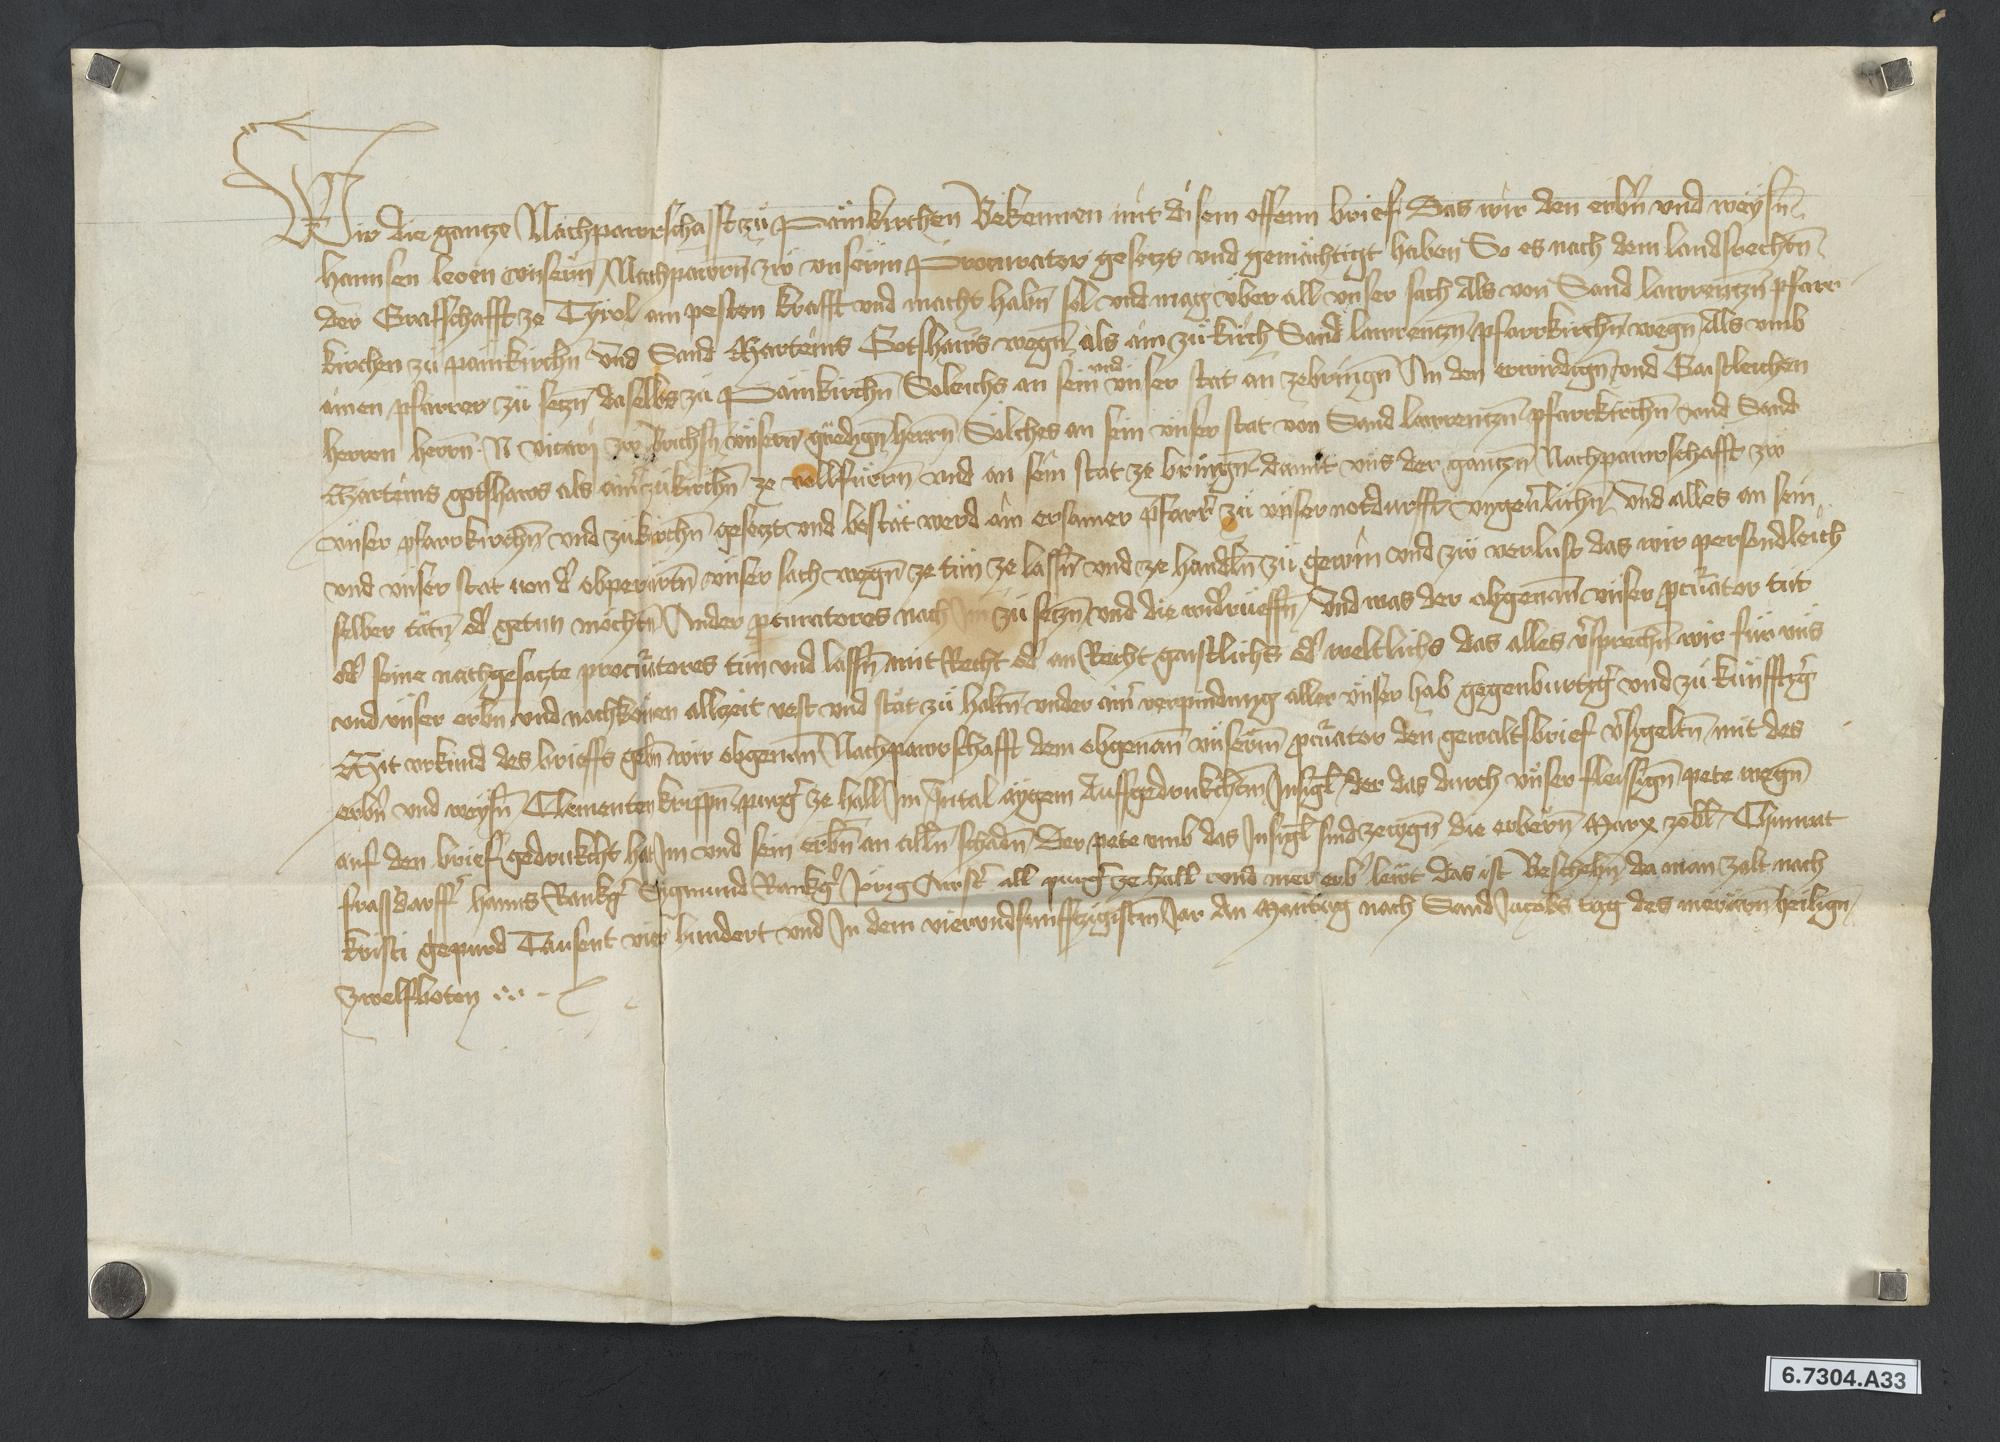 Wir die gantze Nachpawrschafft zü Päinkirchen Bekennen mit disem offenn brief Das wir den erbn̄ vnd weÿsn̄
hannsen leoen vnserm̄ Nachpawrn̄ zw vnserm Procurator gesetzt vnd gemächtigt haben So es nach dem landsrechtn̄
der Grafschafft ze Tyrol am pesten krafft vnd macht habn̄ sol vnd mag vber all vnser sach Als von Sand lawrentzn̄ pfarr
kirchen zü painkirchn̄ vnd Sand Marteins Gotshaws wegn̄ als ain zükirch Sand lawrentzn̄ pfarrkirchn̄ wegn̄ Als vmb
ainen pfarrer zü setzn̄ daselbs zü Päinkirchn̄ Soleichs an sein vnd vnser stat an zebringn̄ An den erwirdign̄ vnd Gaistleichen
herren herrn̄ N vicarÿ zw Brichsn̄ vnsern̄ gnedign̄ herrn̄ Sölches an sein vnser stat von Sand lawrentzn̄ pfarrkirchn̄ vnd Sand
Marteins gotshaws als ain̄ zükirchn̄ ze vollfürn̄ vnd an sein stat ze bringn̄ damit vns der gantzn̄ Nachpawrschafft zw
vnser pfarrkirchn̄ vnd zükirchn̄ gesetzt vnd bestät werd ain ersamer pfarr̉ zü vnser notdurfft vngeu̓lichn̄ vnd alles an sein
vnd vnser stat von d̓ obperürtn̄ vnser sach wegn̄ ze tün ze lassn̄ vnd ze handln̄ zü gewin vnd zw verlust das wir persondleich
selber tätn̄ od̓ getun möchtn̄ Ander p̄curatores nach Im zü setzn̄ vnd die wid̓rüeffn̄ vnd was der obgenan̄ vnser p̄cūrator tüt
od̓ seine nachgesatzte procūratores tün vnd lassn̄ mit Recht od̓ an Recht gaistlichs od̓ weltlichs das alles v̓sprechn̄ wir für vns
vnd vnser erbn̄ vnd nachkomen allzeit vest vnd stät zü haltn̄ vnder ain̓ verpindung aller vnser hab gegenburtig̓ vnd zü künfftig̓
Mit vrkund des brieffs gebn̄ wir obgenan̄ Nachpawrschafft dem obgenan̄ vnserm̄ p̄cūrator den gewaltsbrief v̓sygeltn̄ mit des
erbn̓ vnd weysn̄ Clementen krippn̄ purg̓ ze hall Im Intal aÿgem Auffgedrukchtm̄ Insigl der das durch vnser fleissign̄ pete wegn̄
auf den brief gedrukcht hat Im vnd sein erbn̄ an alln̄ schadn̄ Der pete vmb das Insigl sind zewgn̄ die erbern̄ Marx zobl Chunrat
frassdorff̓ hanns Rankg̓ Sygmund Rankg̓ Jörig Aufst̓ all purg̓ ze hall vnd mer erb̓ lewt das ist Beschehn̄ da man zalt nach
kristi gepurd Tausent vier hundert vnd In dem vierundfunfftzigistm̄ Jar An Mäntag nach Sand Jacobs tag des merärn̄ heilign̄
Zwelfboten
6.7304.A33